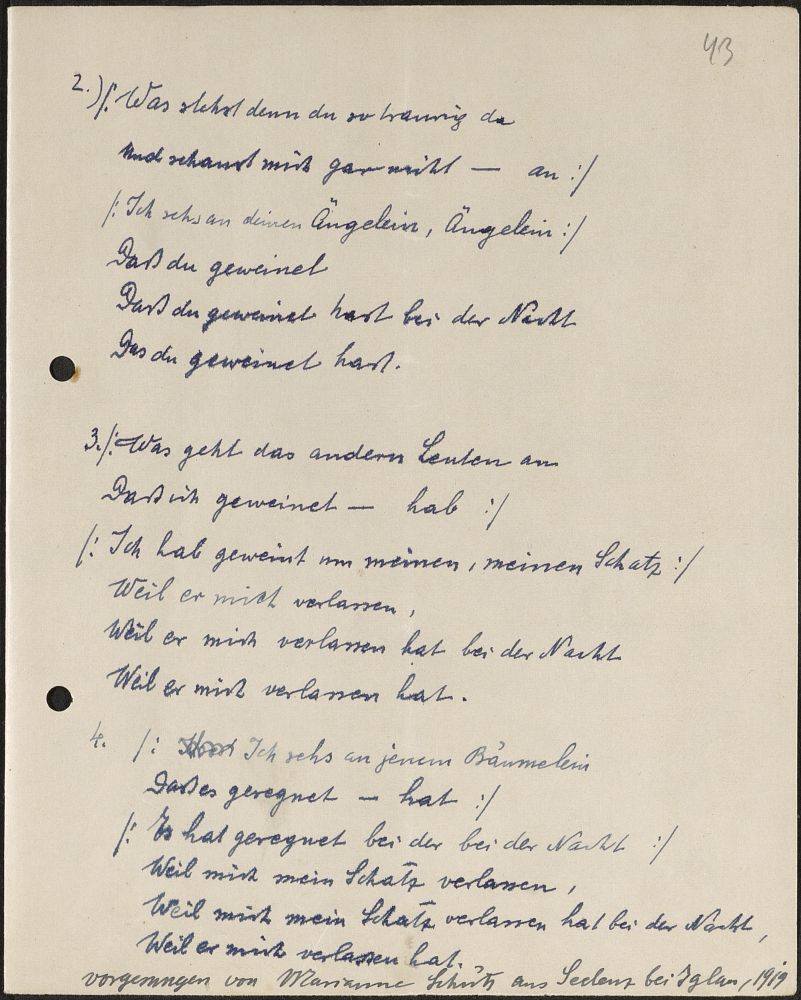 43
2.) /: Was stehst denn du so traurig da
Und schaust mich gar nicht — an :/
/: Ich sehs an deinen Äugelein, Äugelein :/
Daß du geweinet
Daß du geweinet hast bei der Nacht
Das du geweinet hast.
3. /: Was geht das andern Leuten an
Daß ich geweinet — hab :/
/: Ich hab geweint um meinen, meinen Schatz :/
Weil er mich verlassen,
Weil er mich verlassen hat bei der Nacht
Weil er mich verlassen hat.
4. /: Ich sehs an jenem Bäumelein
Daß es geregnet — hat :/
/: Es hat geregnet bei der bei der Nacht :/
Weil mich mein Schatz verlassen,
Weil mich mein Schatz verlassen hat bei der Nacht,
Weil er mich verlassen hat.
vorgesungen von Marianne Schütz aus Seelenz bei Iglau, 1919